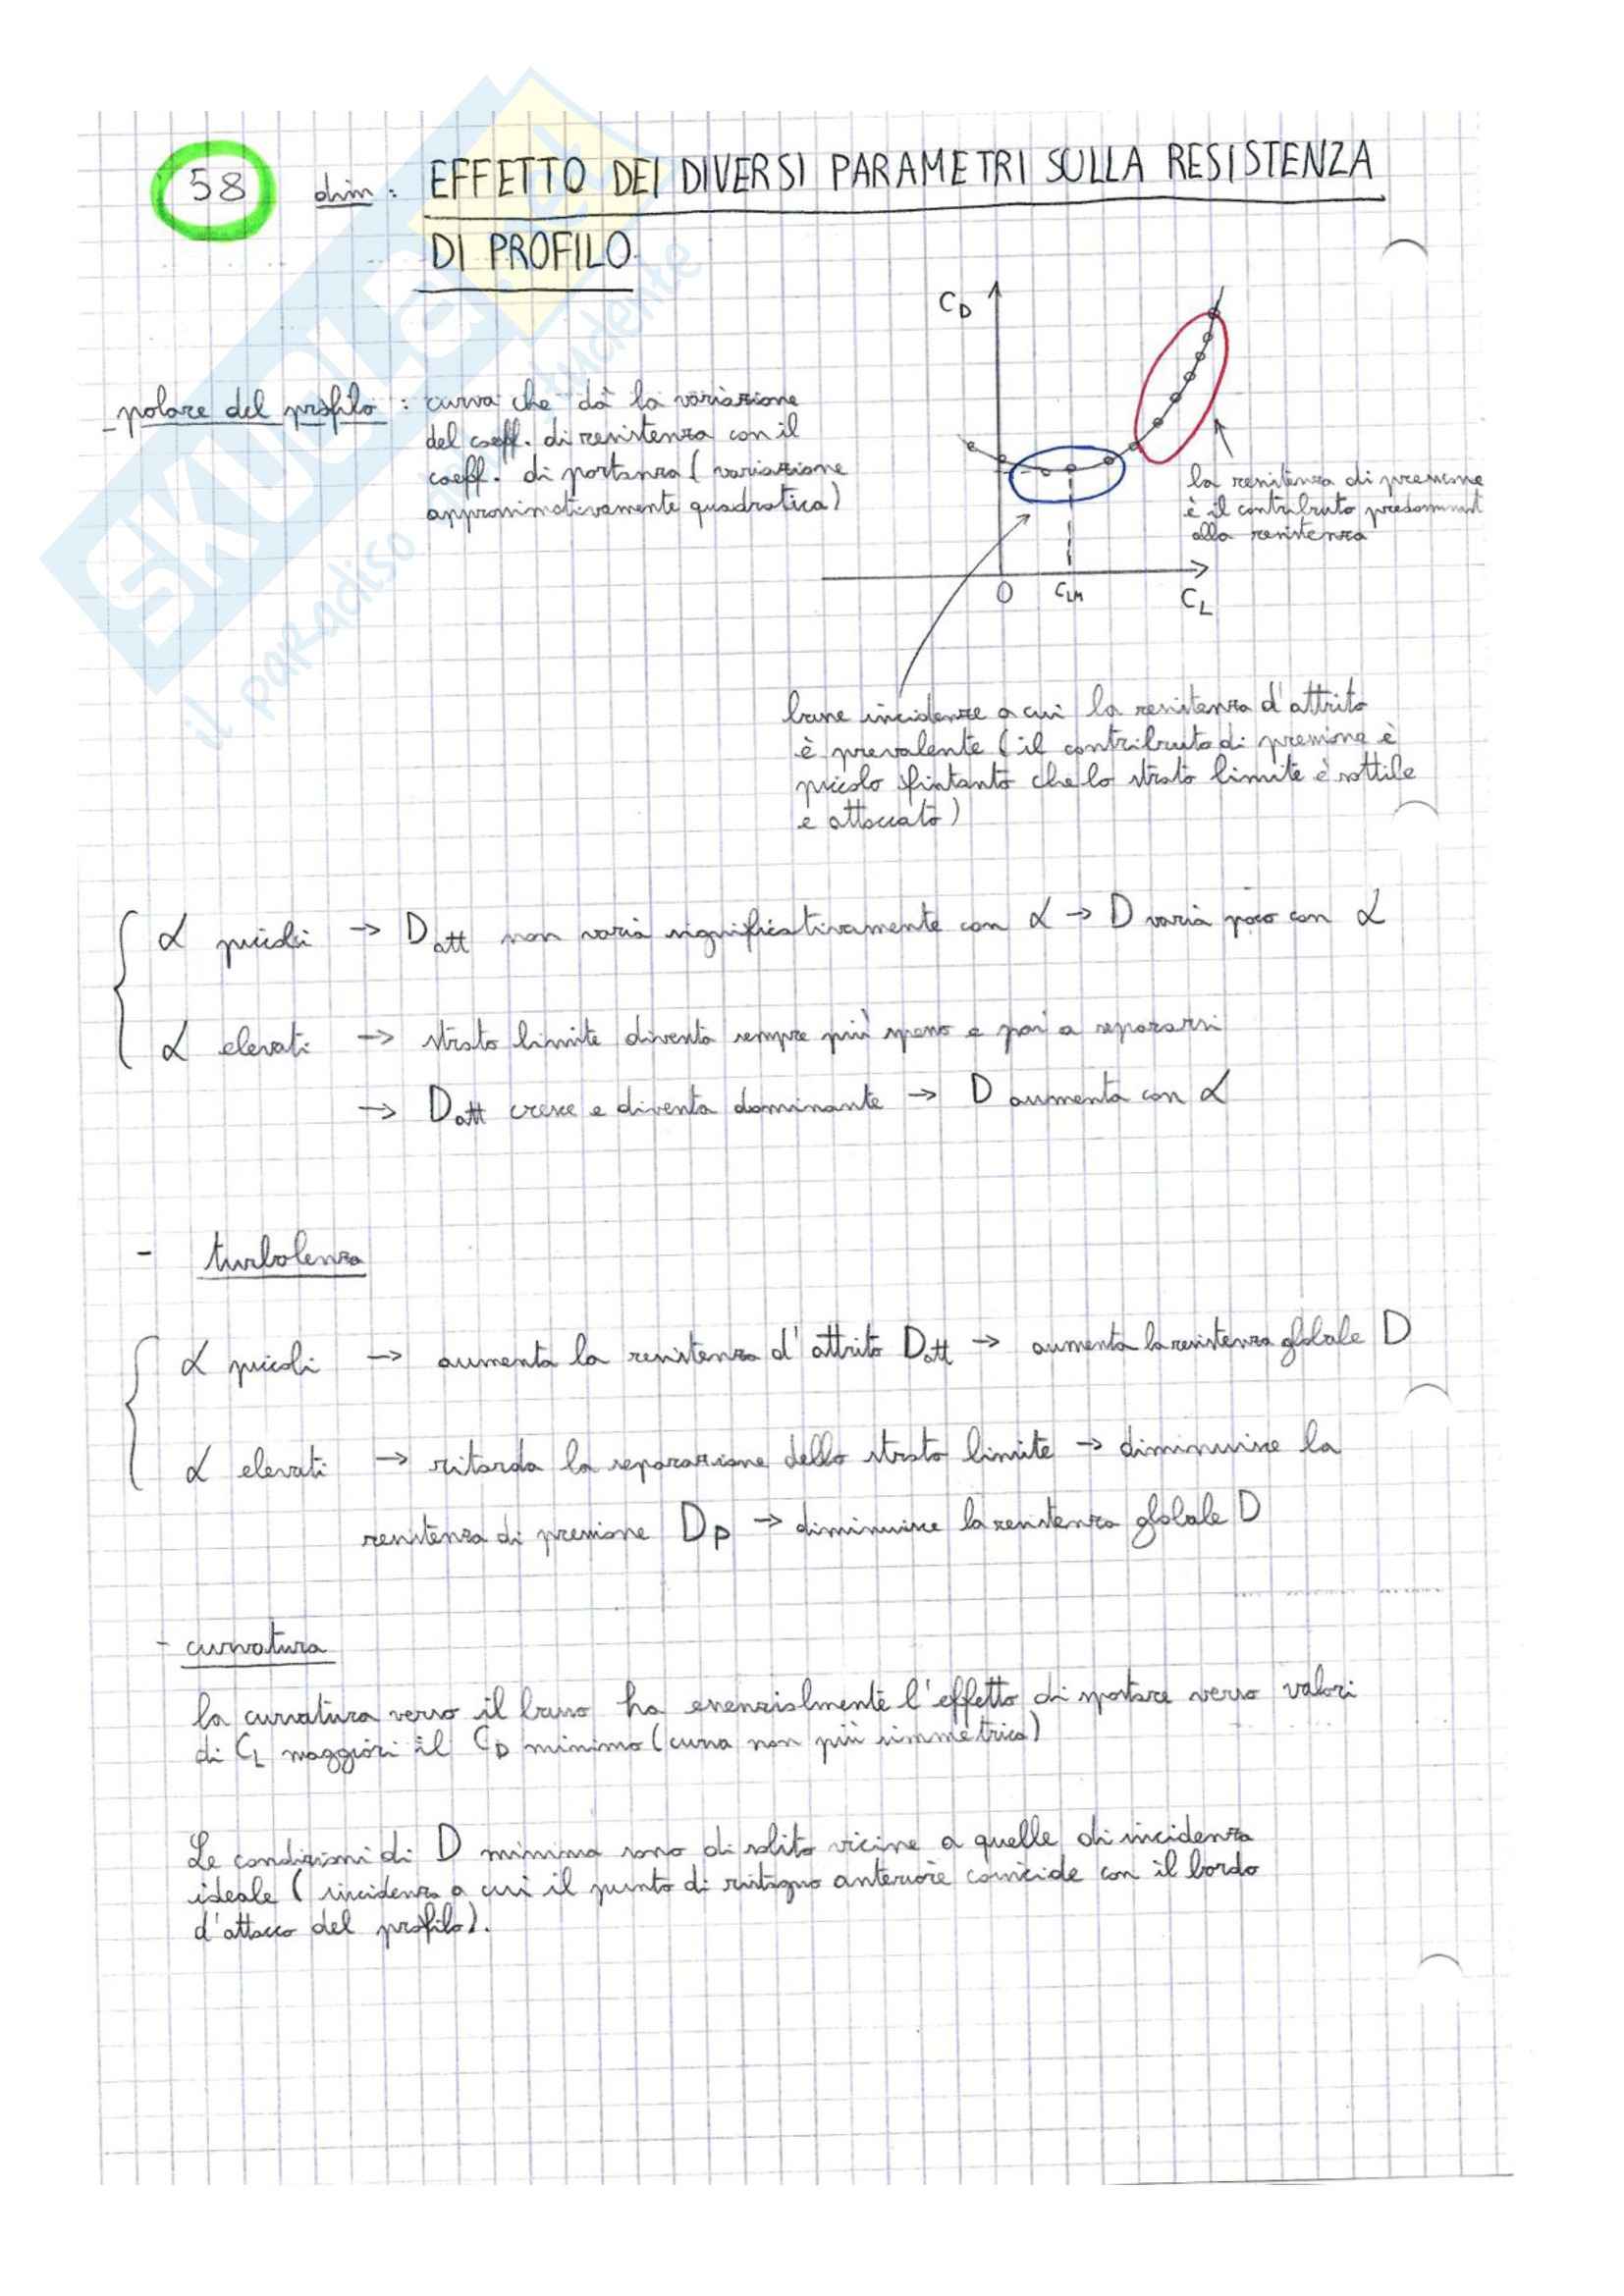 58 dim: EFFETTO DEI DIVERSI PARAMETRI SULLA RESISTENZA
DI PROFILO
- polare del profilo : curva che dà la variazione
del coeff. di resistenza con il
coeff. di portanza (variazione
approssimativamente quadratica)
CD
la resistenza di pressione
è il contributo predominant
alla resistenza
O CLM CL
basse incidenze a cui la resistenza d'attrito
è prevalente (il contributo di pressione è
piccolo fintanto che lo strato limite è sottile
e attaccato)
α piccoli → Datt non varia significativamente con α → D varia poco con α
α elevati → strato limite diventa sempre più spesso e poi a separarsi
→ Datt cresce e diventa dominante → D aumenta con α
- turbolenza
α piccoli → aumenta la resistenza d'attrito Datt → aumenta la resistenza globale D
α elevati → ritarda la separazione dello strato limite → diminuisce la
resistenza di pressione Dp → diminuisce la resistenza globale D
- curvatura
la curvatura verso il basso ha essenzialmente l'effetto di spostare verso valori
di CL maggiori il CD minimo (curva non più simmetrica)
Le condizioni di D minima sono di solito vicine a quelle di incidenza
ideale (incidenza a cui il punto di ristagno anteriore coincide con il bordo
d'attacco del profilo).
SKUOLA.net
il paradiso dello studente